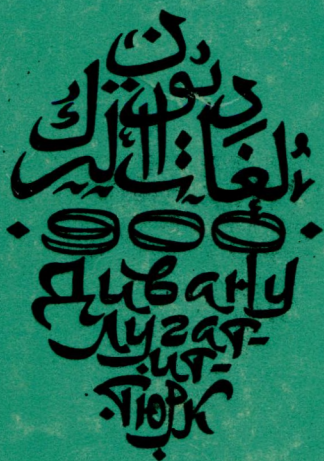 ديوان
لغات الترك
900
Дивану
лугат-
ит-
тюрк